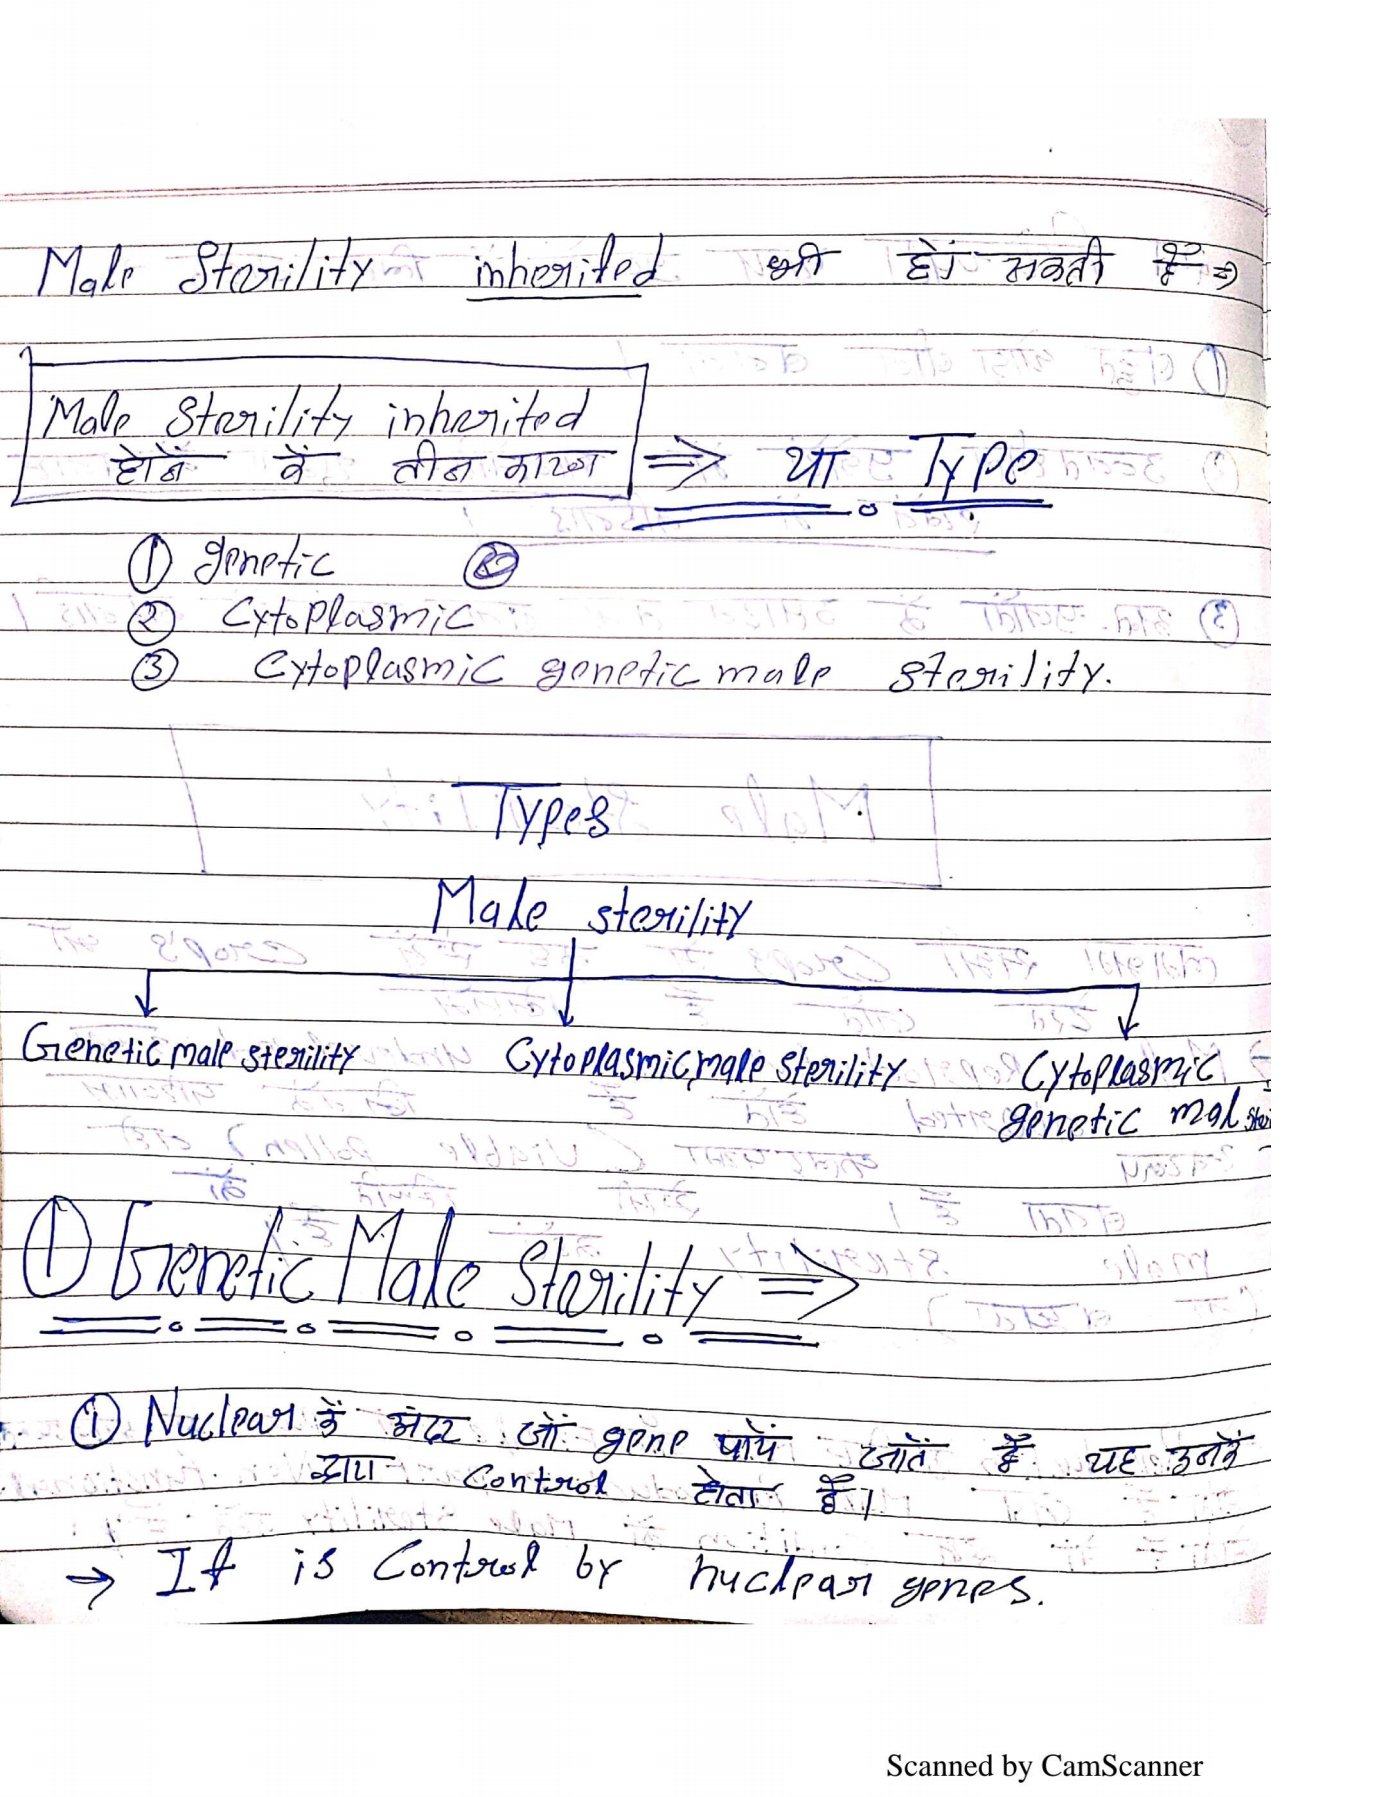 Male Sterility inherited भी हो सकती है ⇒
Male Sterility inherited
होने के तीन कारण ⇒ या Type
① genetic
② Cytoplasmic
③ Cytoplasmic genetic male sterility.
Types
Male sterility
Genetic male sterility Cytoplasmic male sterility Cytoplasmic
genetic mal ste
① Genetic Male Sterility ⇒
① Nuclear के अंदर जो gene पाये जाते हैं यह उनके
द्वारा Control होता है।
→ It is Control by nuclear genes.
Scanned by CamScanner